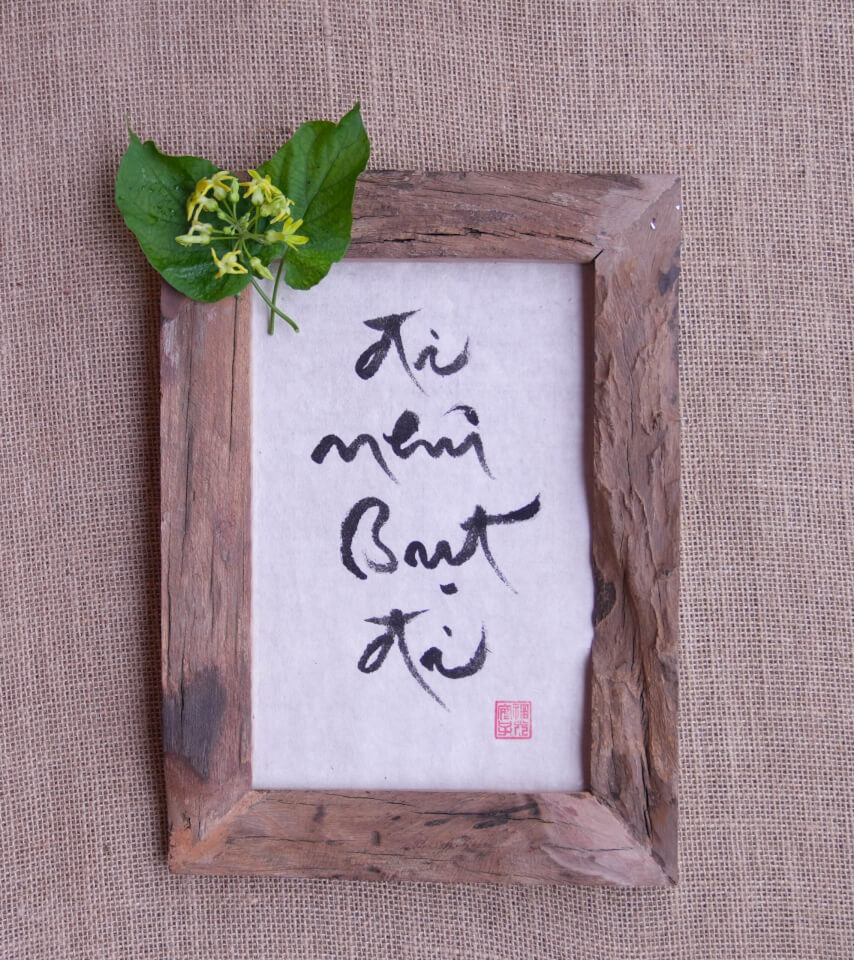 đi
như
Bụt
đi